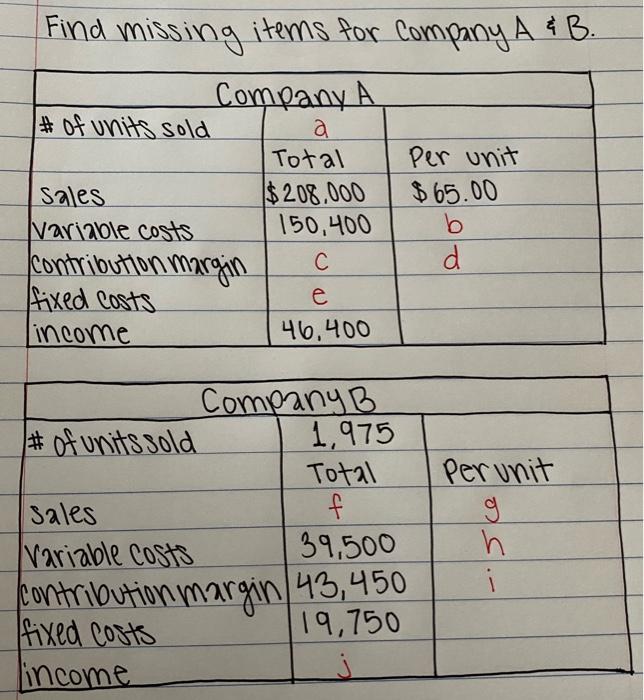 Find missing items for Company A & B.
Company A
# of units sold a
Total Per unit
sales $208,000 $65.00
variable costs 150,400 b
contribution margin c d
fixed costs e
income 46,400
Company B
# of units sold 1,975
Total Per unit
sales f g
variable costs 39,500 h
contribution margin 43,450 i
fixed costs 19,750
income j